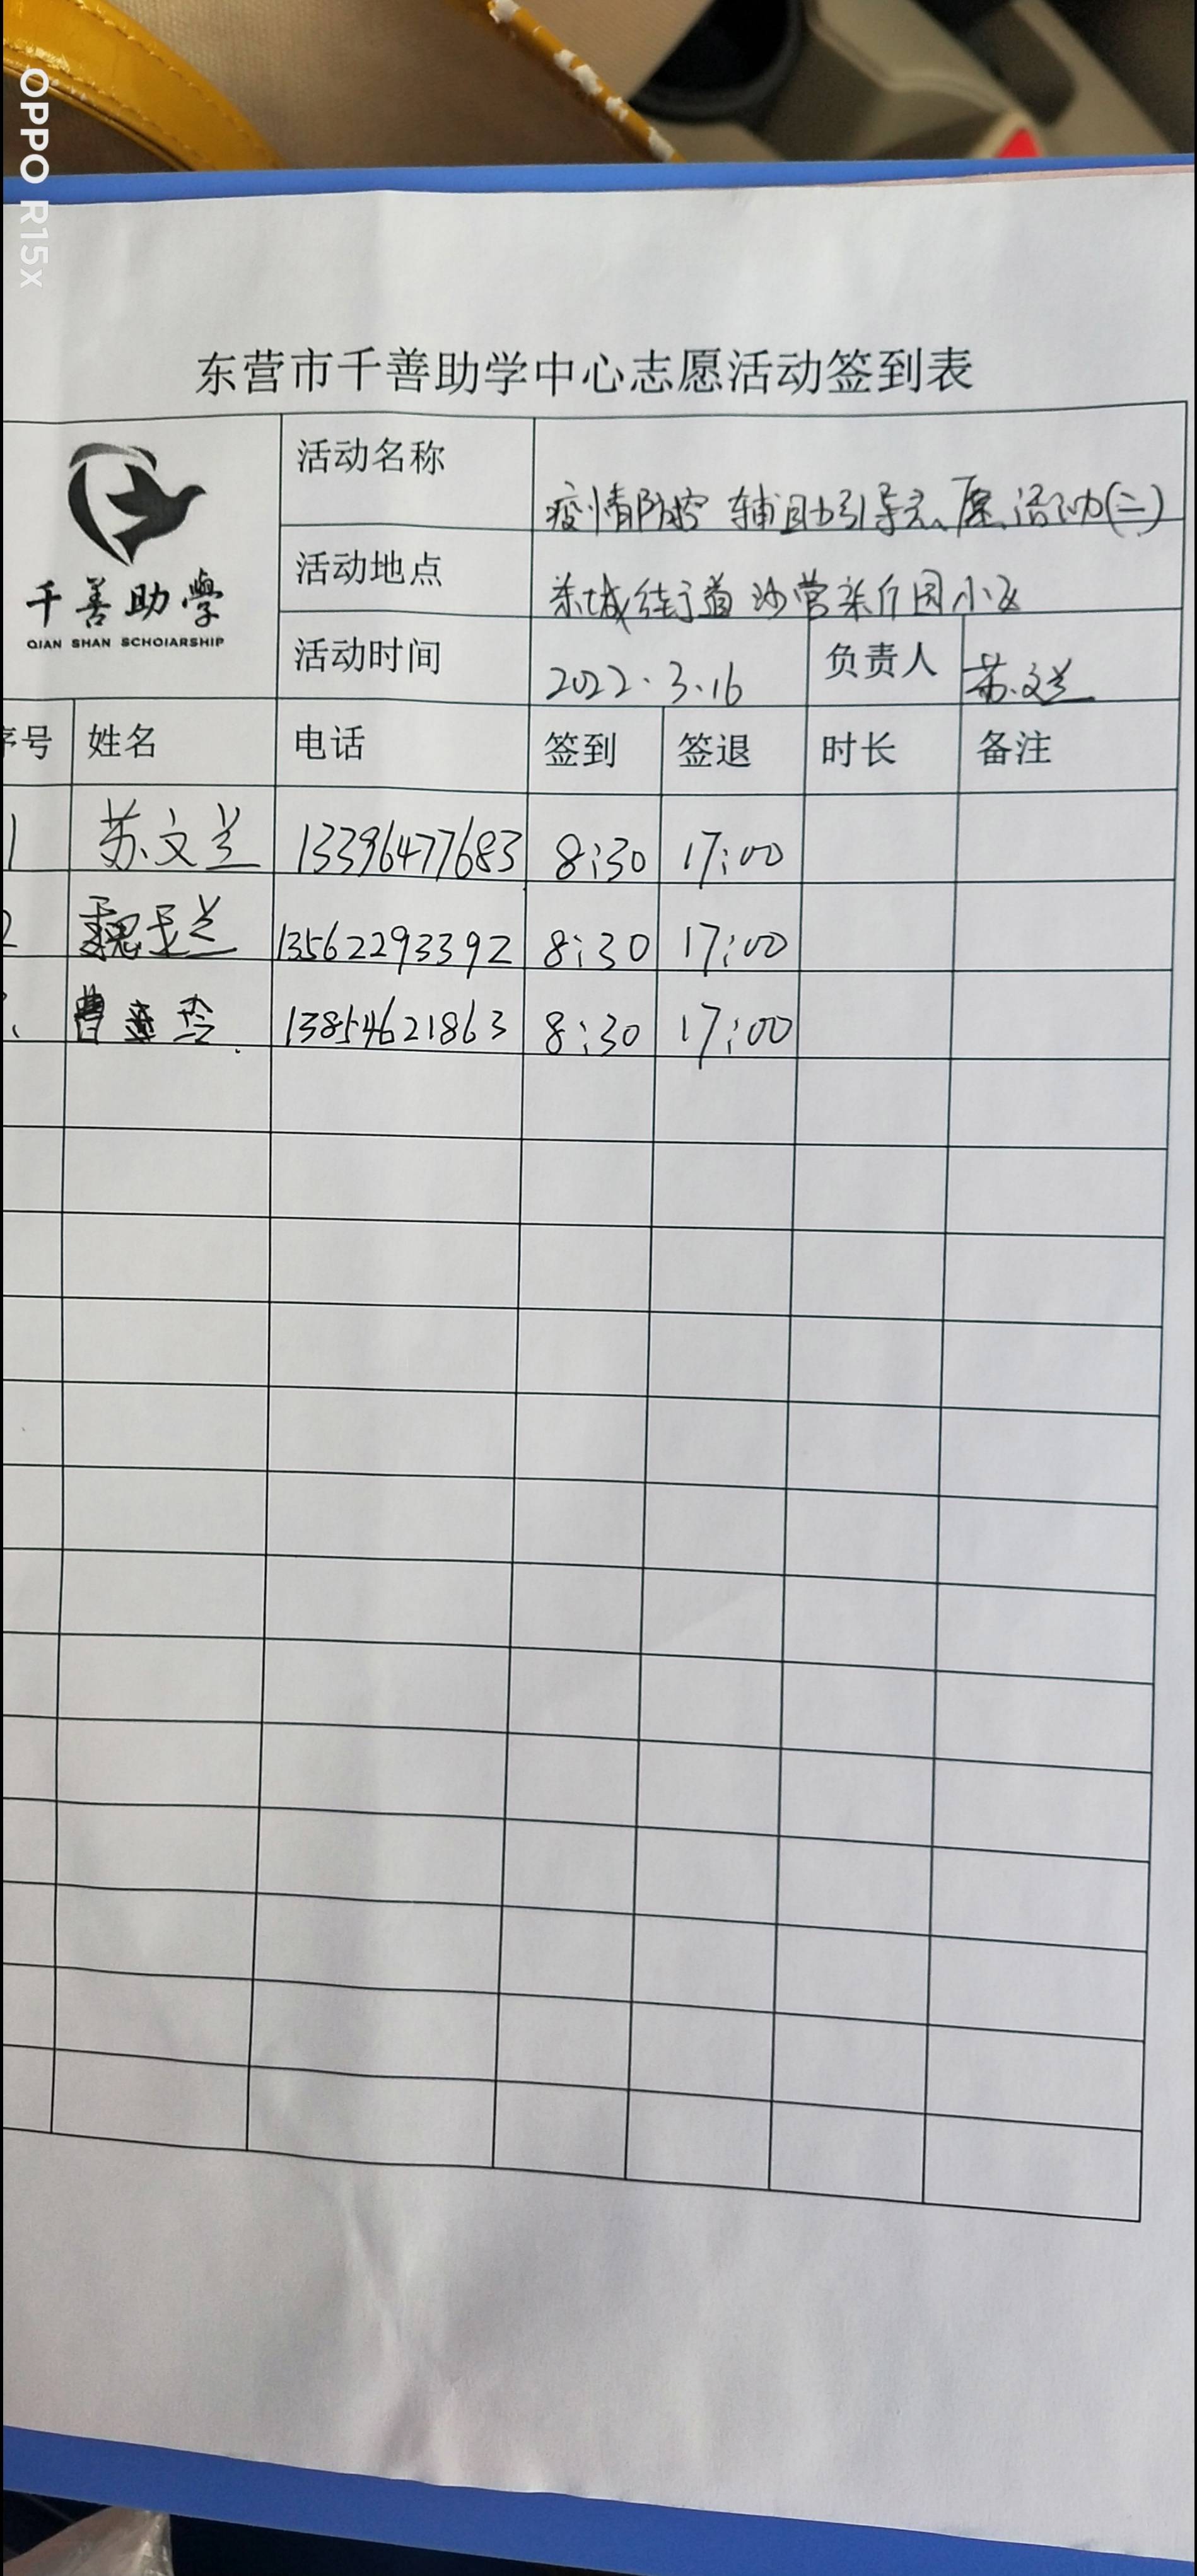 OPPO R15x
东营市千善助学中心志愿活动签到表
千善助學
QIAN SHAN SCHOIARSHIP
活动名称 疫情防控 辅助引导志愿活动(二)
活动地点 东城街道 沙营 小区
活动时间 2022.3.16 负责人 苏文兰
序号 姓名 电话 签到 签退 时长 备注
1 苏文兰 13396477683 8:30 17:00
2 魏 兰 13562293392 8:30 17:00
曹 玲 13854621863 8:30 17:00